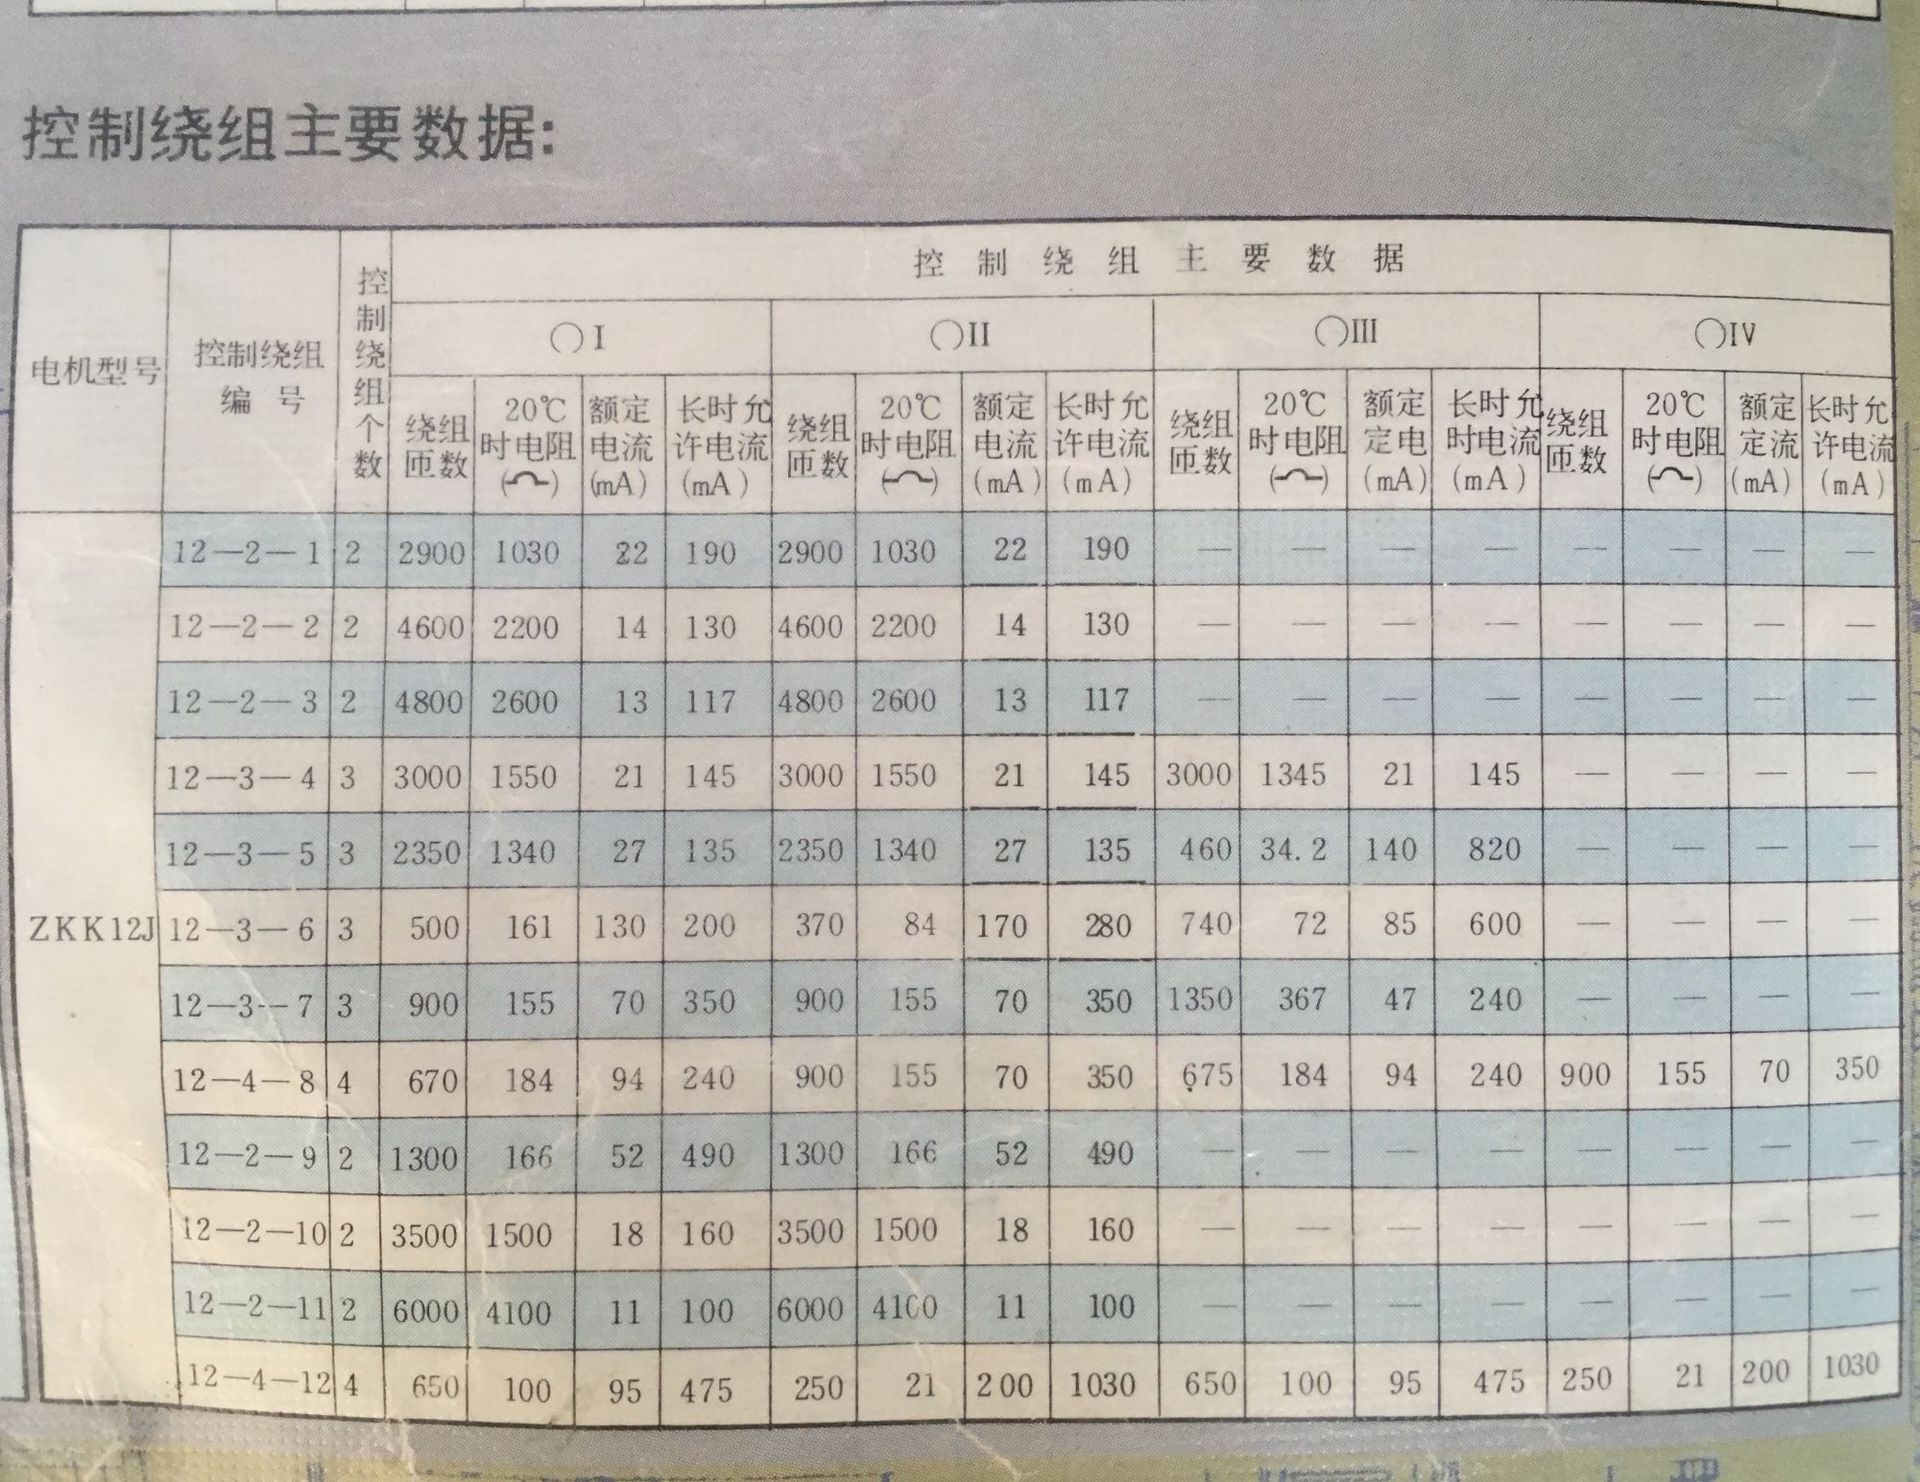 控制绕组主要数据:
电机型号 控制绕组编号 控制绕组个数 控制绕组主要数据
○I ○II ○III ○IV
绕组匝数 20℃时电阻(⌒) 额定电流(mA) 长时允许电流(mA) 绕组匝数 20℃时电阻(⌒) 额定电流(mA) 长时允许电流(mA) 绕组匝数 20℃时电阻(⌒) 额定定电(mA) 长时允时电流(mA) 绕组匝数 20℃时电阻(⌒) 额定定流(mA) 长时允许电流(mA)
ZKK12J
12—2—1 2 2900 1030 22 190 2900 1030 22 190 — — — — — — — —
12—2—2 2 4600 2200 14 130 4600 2200 14 130 — — — — — — — —
12—2—3 2 4800 2600 13 117 4800 2600 13 117 — — — — — — — —
12—3—4 3 3000 1550 21 145 3000 1550 21 145 3000 1345 21 145 — — — —
12—3—5 3 2350 1340 27 135 2350 1340 27 135 460 34.2 140 820 — — — —
12—3—6 3 500 161 130 200 370 84 170 280 740 72 85 600 — — — —
12—3—7 3 900 155 70 350 900 155 70 350 1350 367 47 240 — — — —
12—4—8 4 670 184 94 240 900 155 70 350 675 184 94 240 900 155 70 350
12—2—9 2 1300 166 52 490 1300 166 52 490 — — — — — — — —
12—2—10 2 3500 1500 18 160 3500 1500 18 160 — — — — — — — —
12—2—11 2 6000 4100 11 100 6000 4100 11 100 — — — — — — — —
12—4—12 4 650 100 95 475 250 21 200 1030 650 100 95 475 250 21 200 1030